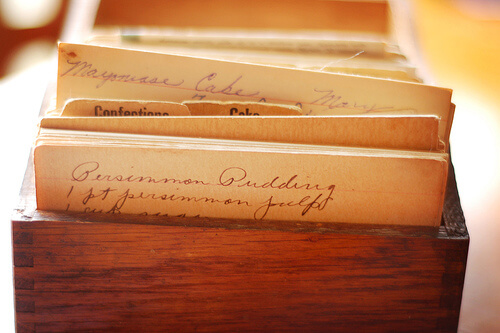 Mayonnaise Cake Mary
Confections Cake
Persimmon Pudding
1 pt persimmon pulp
1 cup sugar